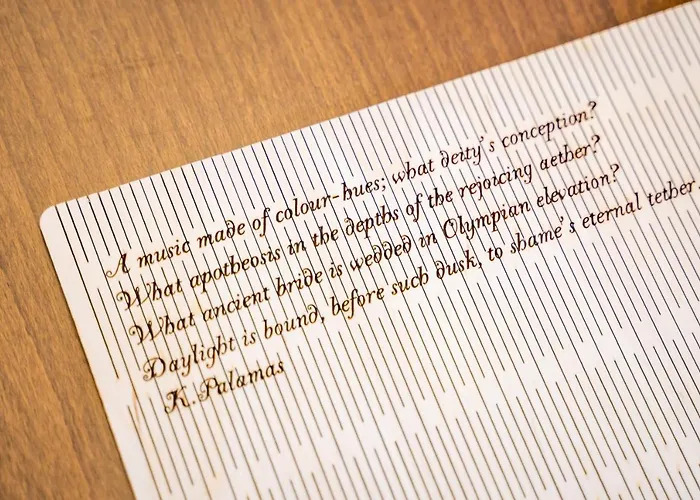 A music made of colour-hues; what deity's conception?
What apotheosis in the depths of the rejoicing aether?
What ancient bride is wedded in Olympian elevation?
Daylight is bound, before such dusk, to shame's eternal tether
K.Palamas